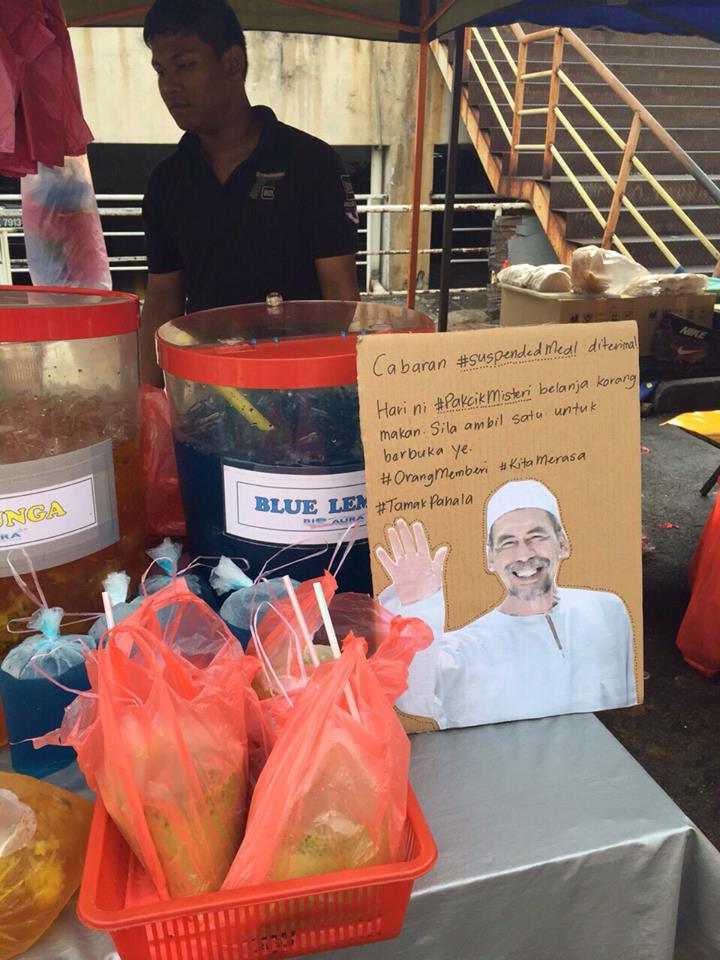 Cabaran #suspendedMeal diterima!
Hari ni #PakcikMisteri belanja korang
makan. Sila ambil satu untuk
berbuka ye.
#OrangMemberi #KitaMerasa
#TamakPahala
UNGA
URA
BLUE LEM
BIO AURA
7913
NIKE